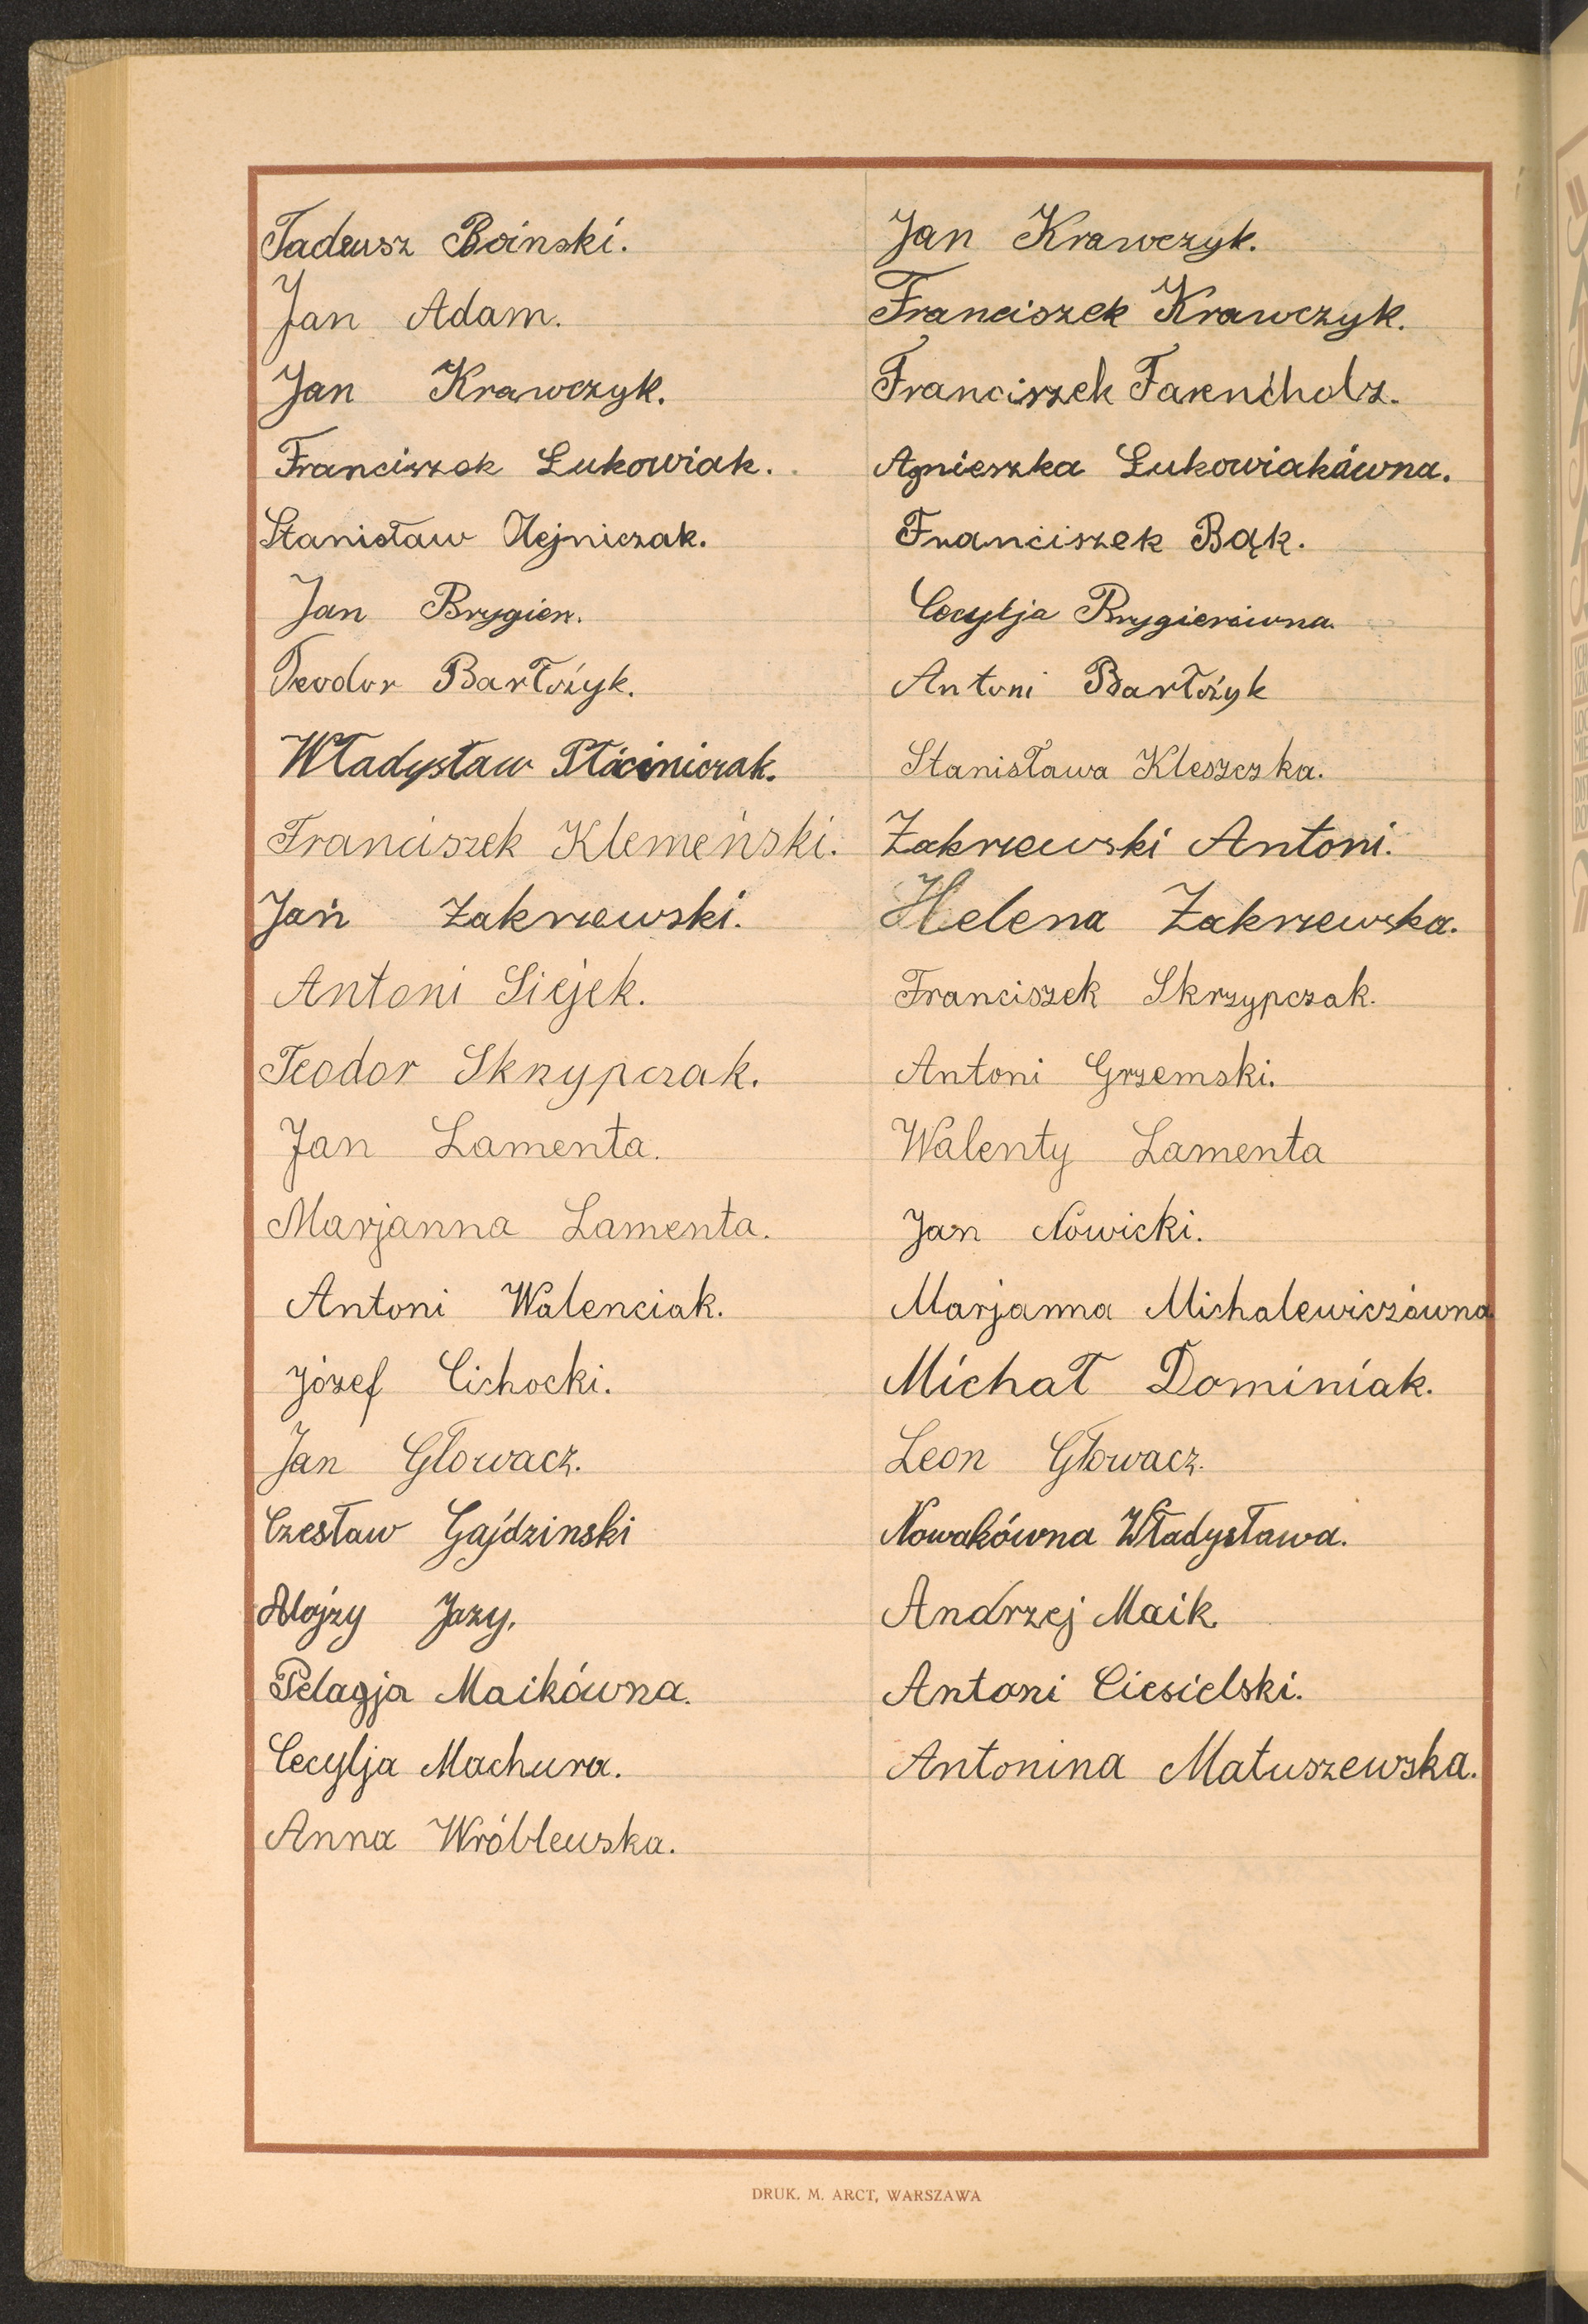 Tadeusz Boinski.
Jan Adam.
Jan Krawczyk.
Franciszek Łukowiak.
Stanisław Olejniczak.
Jan Brygier.
Teodor Bartłożyk.
Władysław Płóciniczak.
Franciszek Klemeński.
Jan Zakrzewski.
Antoni Siejek.
Teodor Skrzypczak.
Jan Lamenta.
Marjanna Lamenta.
Antoni Walenciak.
Józef Cichocki.
Jan Głowacz.
Czesław Gajdzinski
Alojzy Jazy.
Pelagja Maikówna.
Cecylja Machura.
Anna Wróblewska.
Jan Krawczyk.
Franciszek Krawczyk.
Franciszek Farencholz.
Agnieszka Łukowiakówna.
Franciszek Bąk.
Cecylja Brygierówna.
Antoni Bartłożyk
Stanisława Kleszczka.
Zakrzewski Antoni.
Helena Zakrzewska.
Franciszek Skrzypczak.
Antoni Grzemski.
Walenty Lamenta
Jan Nowicki.
Marjanna Michalewiczówna
Michał Dominiak.
Leon Głowacz.
Nowakówna Władysława.
Andrzej Maik.
Antoni Ciesielski.
Antonina Matuszewska.
DRUK. M. ARCT, WARSZAWA